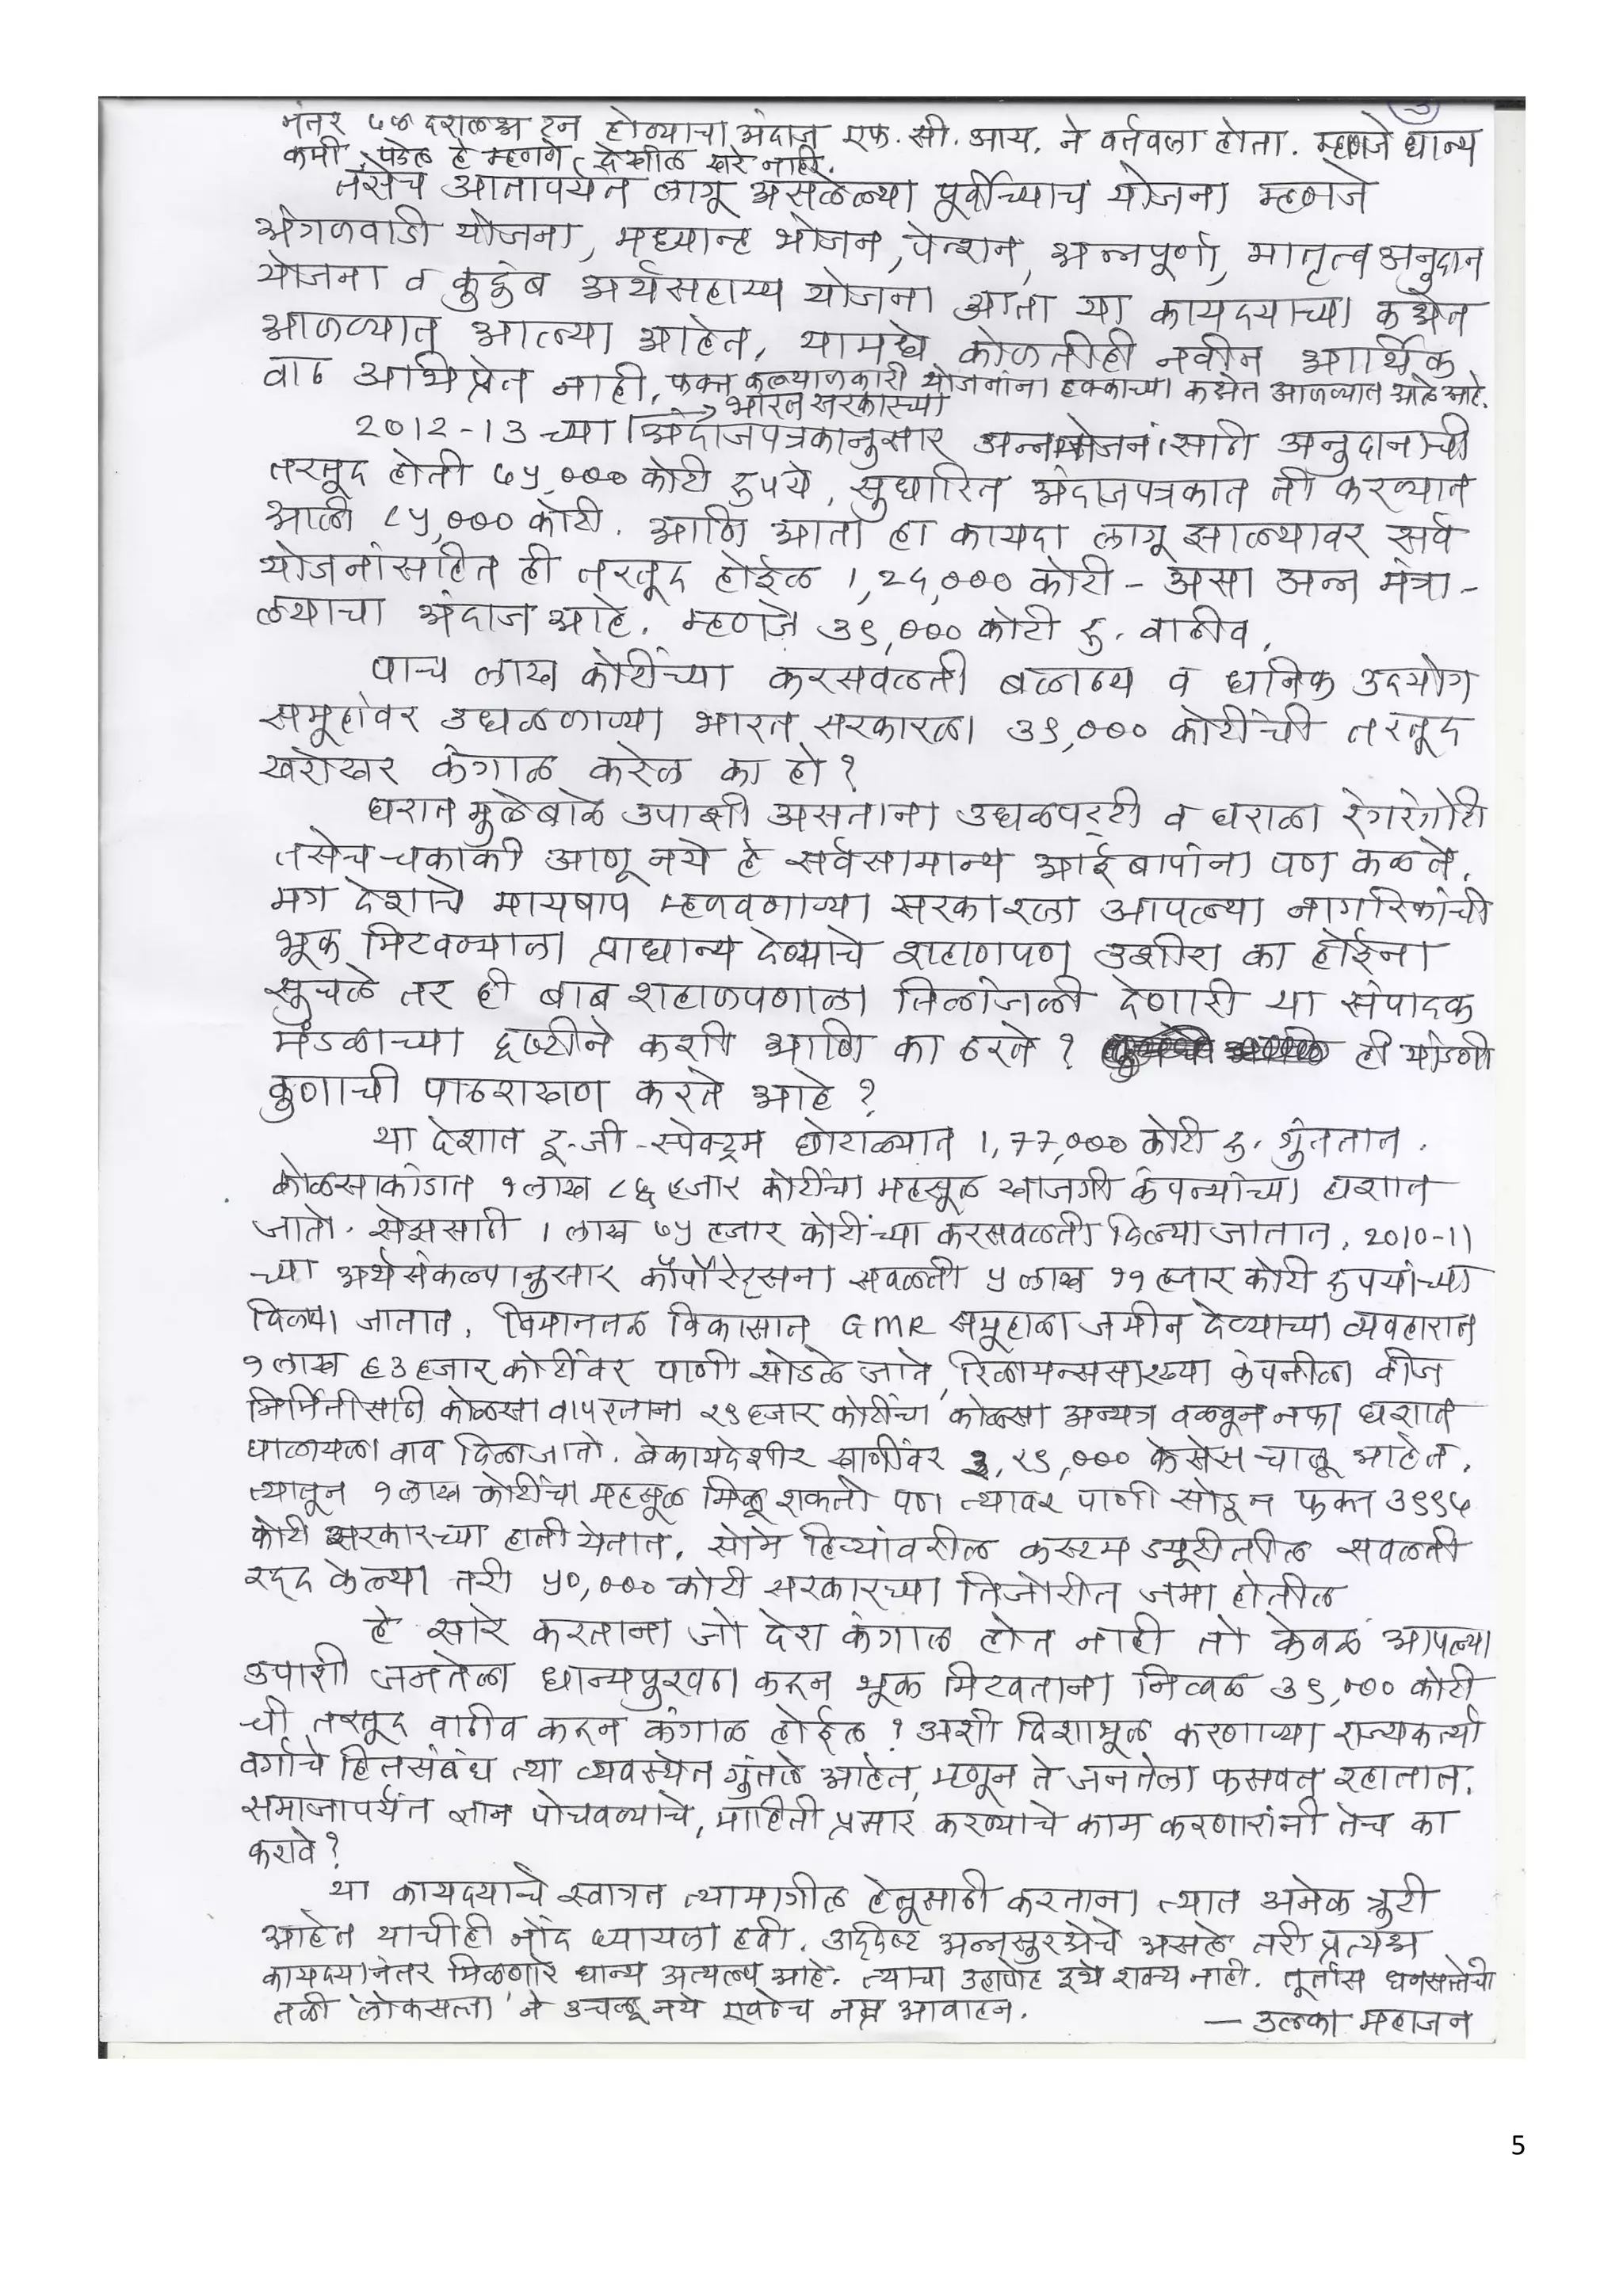 3
नंतर ७७ दशलक्ष टन होण्याचा अंदाज एफ. सी. आय. ने वर्तवला होता. म्हणजे धान्य
कमी पडेल हे म्हणणे देखील खरे नाही.
तसेच आतापर्यंत लागू असलेल्या पूर्वीच्याच योजना म्हणजे
अंगणवाडी योजना, मध्यान्ह भोजन, पेन्शन, अन्नपूर्णा, मातृत्व अनुदान
योजना व कुटुंब अर्थसहाय्य योजना आता या कायद्याच्या कक्षेत
आणण्यात आल्या आहेत, यामध्ये कोणतीही नवीन आर्थिक
वाढ अभिप्रेत नाही, फक्त कल्याणकारी योजनांना हक्काच्या कक्षेत आणण्यात आले आहे.
भारत सरकारच्या
2012-13 च्या अंदाजपत्रकानुसार अन्नयोजनांसाठी अनुदानाची
तरतूद होती ७५,००० कोटी रुपये. सुधारित अंदाजपत्रकात ती करण्यात
आली ८५,००० कोटी. आणि आता हा कायदा लागू झाल्यावर सर्व
योजनांसहित ही तरतूद होईल १,२४,००० कोटी - असा अन्न मंत्रा-
लयाचा अंदाज आहे. म्हणजे ३९,००० कोटी रु. वाढीव.
पाच लाख कोटींच्या करसवलती बलाढ्य व धनिक उद्योग
समूहांवर उधळणाऱ्या भारत सरकारला ३९,००० कोटींची तरतूद
खरोखर कंगाल करेल का हो?
घरात मुलेबाळे उपाशी असताना उधळपट्टी व घराला रंगरंगोटी
तसेच चकाकी आणू नये हे सर्वसामान्य आईबापांना पण कळते.
मग देशाचे मायबाप म्हणवणाऱ्या सरकारला आपल्या नागरिकांची
भूक मिटवण्याला प्राधान्य देण्याचे शहाणपण उशीरा का होईना
सुचले तर ही बाब शहाणपणाला तिलांजली देणारी या संपादक
मंडळाच्या दृष्टीने कशी आणि का ठरते? ही मांडणी
कुणाची पाठराखण करते आहे?
या देशात टू-जी-स्पेक्ट्रम घोटाळ्यात 1,77,000 कोटी रु. गुंततात.
कोळसाकांडात १ लाख ८६ हजार कोटींचा महसूल खाजगी कंपन्यांच्या घशात
जातो. सेझसाठी १ लाख ७५ हजार कोटींच्या करसवलती दिल्या जातात. 2010-11
च्या अर्थसंकल्पानुसार कॉर्पोरेट्सना सवलती ५ लाख ११ हजार कोटी रुपयांच्या
दिल्या जातात. विमानतळ विकासात GMR समूहाला जमीन देण्याच्या व्यवहारात
१ लाख ६३ हजार कोटींवर पाणी सोडले जाते, रिलायन्ससारख्या कंपनीला वीज
निर्मितीसाठी कोळसा वापरताना २९ हजार कोटींचा कोळसा अन्यत्र वळवून नफा घशात
घालायला वाव दिला जातो. बेकायदेशीर खाणींवर केसेस चालू आहेत.
त्यातून १ लाख कोटींचा महसूल मिळू शकतो पण त्यावर पाणी सोडून फक्त
कोटी सरकारच्या हाती येतात. सोने हिऱ्यांवरील कस्टम ड्यूटीतील सवलती
रद्द केल्या तरी ५०,००० कोटी सरकारच्या तिजोरीत जमा होतील
हे सारे करताना जो देश कंगाल होत नाही तो केवळ आपल्या
उपाशी जनतेला धान्यपुरवठा करून भूक मिटवताना निव्वळ ३९,००० कोटी
ची तरतूद वाढीव करून कंगाल होईल? अशी दिशाभूल करणाऱ्या राज्यकर्त्या
वर्गाचे हितसंबंध त्या व्यवस्थेत गुंतले आहेत, म्हणून ते जनतेला फसवत रहातात.
समाजापर्यंत ज्ञान पोचवण्याचे, माहिती प्रसार करण्याचे काम करणारांनी तेच का
करावे?
या कायद्याचे स्वागत त्यामागील हेतूसाठी करताना त्यात अनेक त्रुटी
आहेत याचीही नोंद घ्यायला हवी. उद्दिष्ट अन्नसुरक्षेचे असले तरी प्रत्यक्ष
कायद्यानंतर मिळणारे धान्य अत्यल्प आहे. त्याचा उहापोह इथे शक्य नाही. तूर्तास धनसत्तेची
तळी 'लोकसत्ता' ने उचलू नये एवढेच नम्र आवाहन.
— उल्का महाजन
5